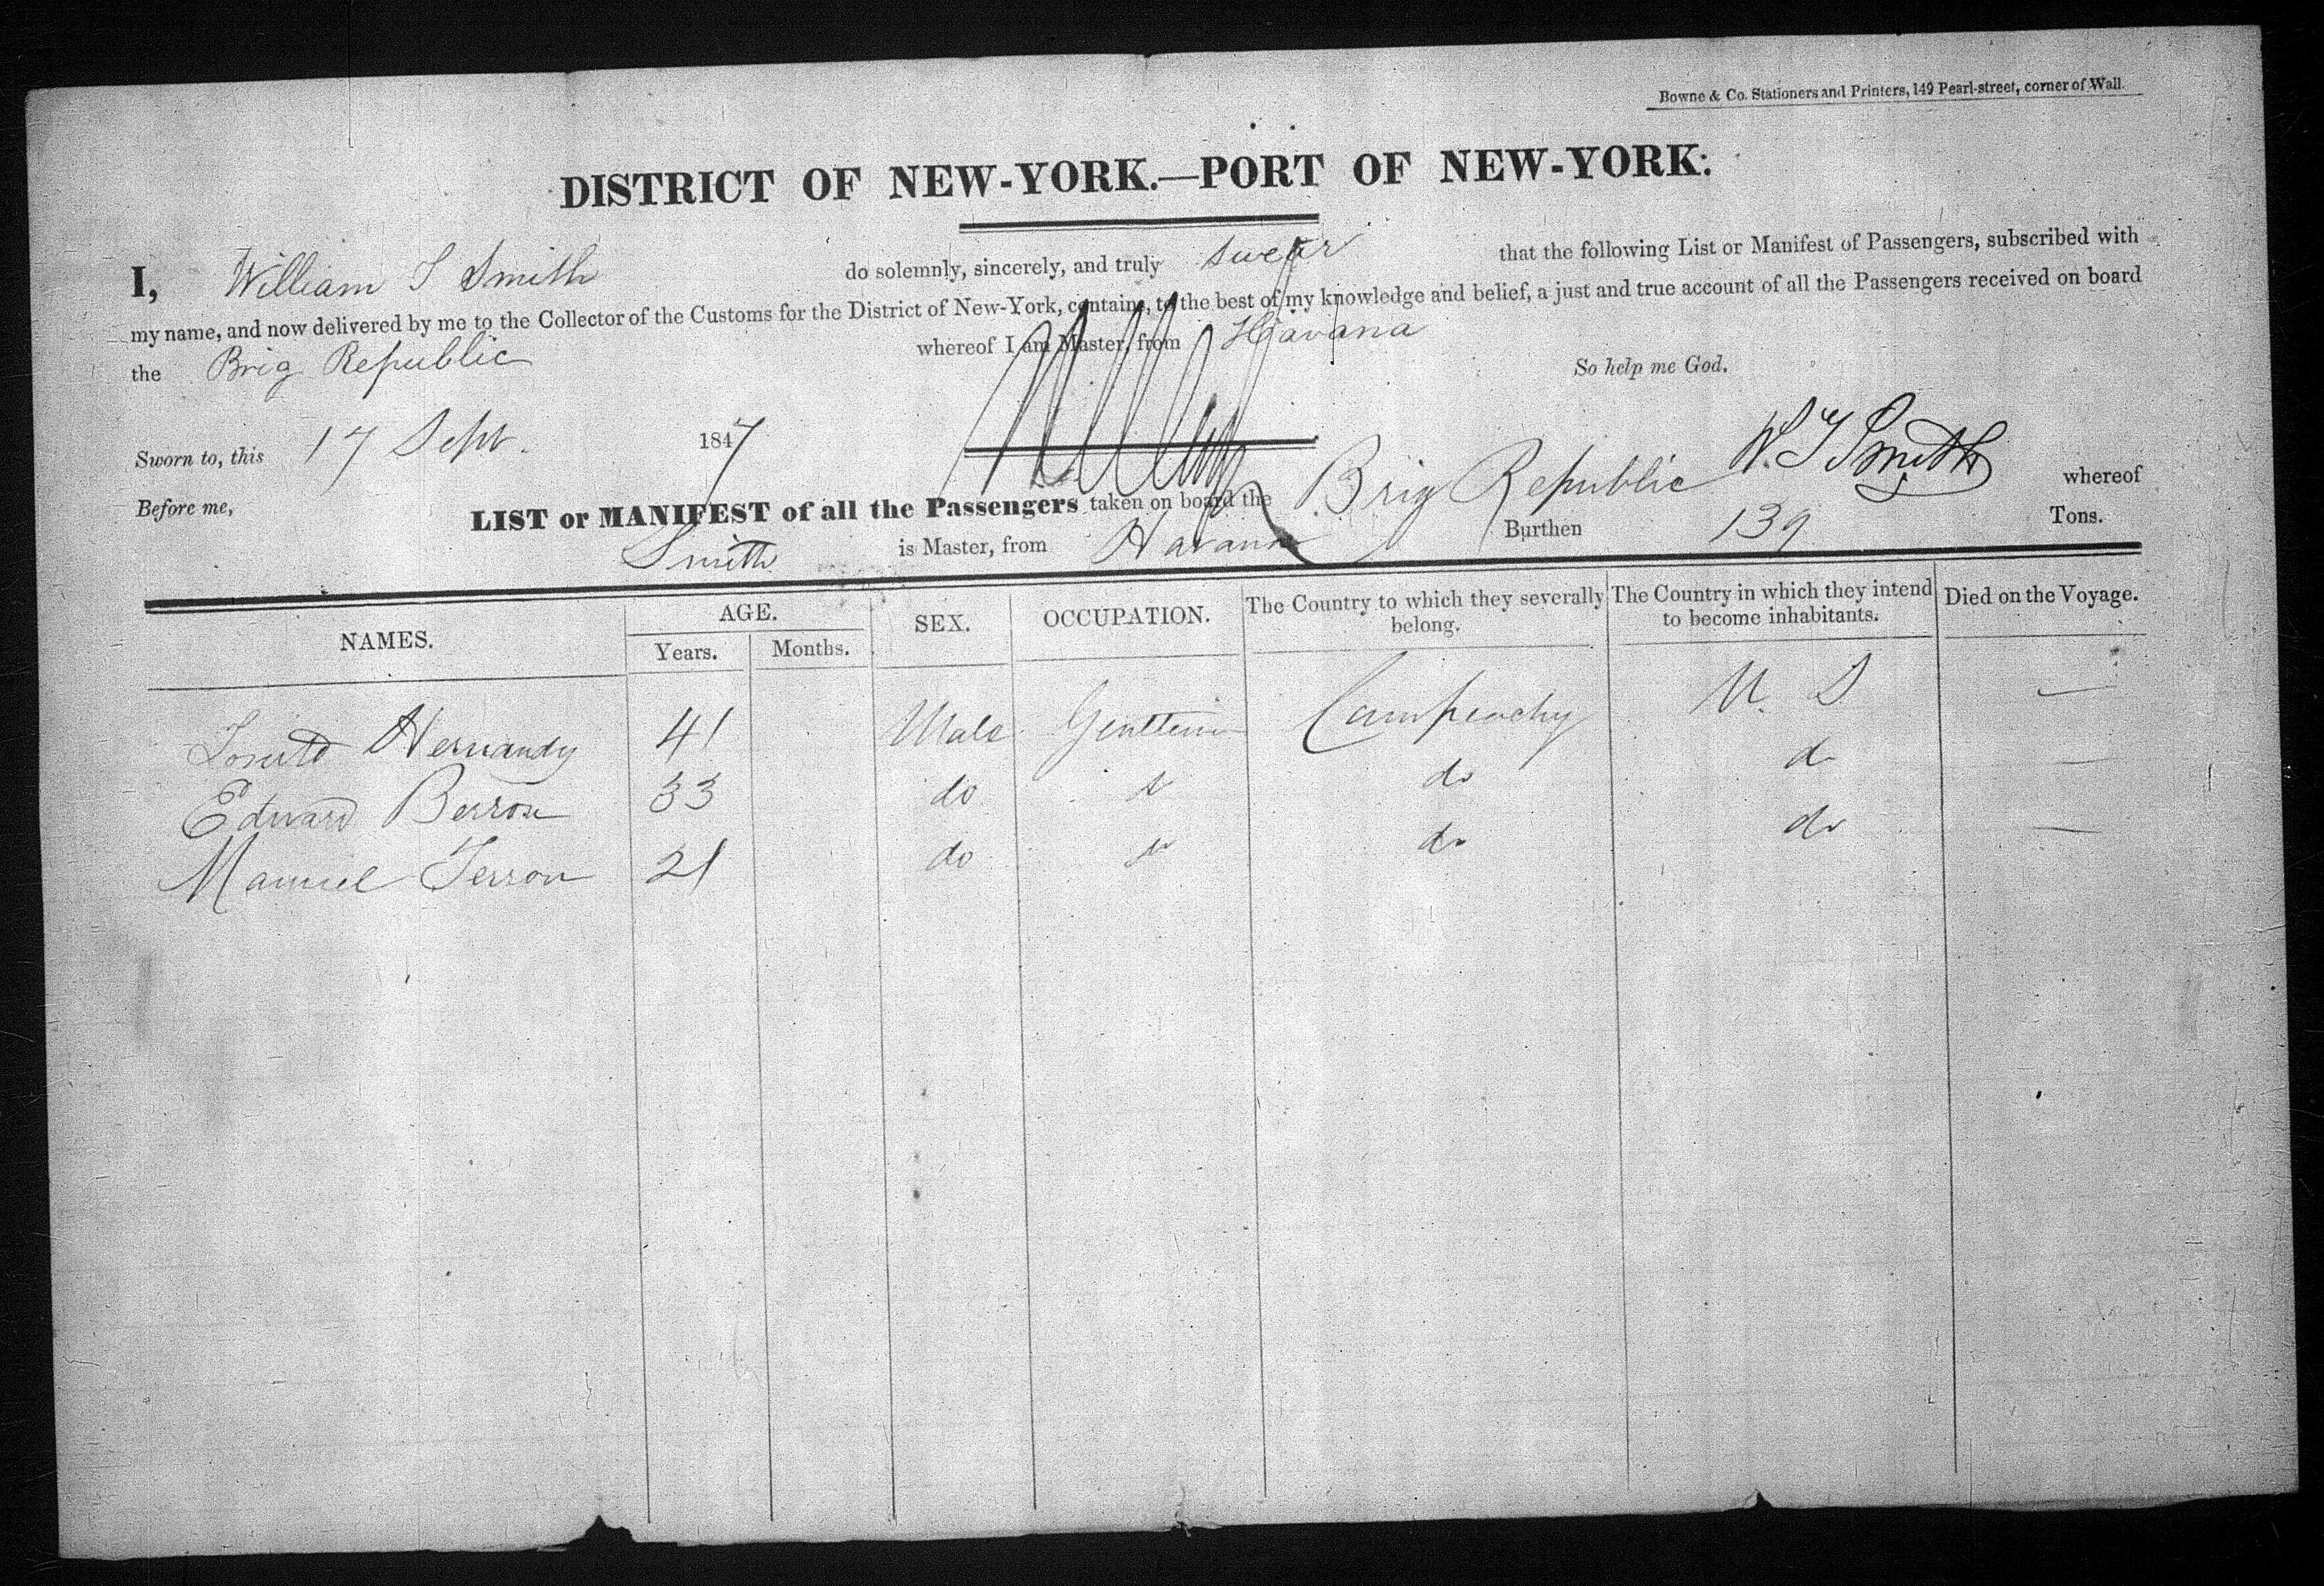 Bowne & Co. Stationers and Printers, 149 Pearl-street, corner of Wall.
DISTRICT OF NEW-YORK.—PORT OF NEW-YORK.
I, William T Smith do solemnly, sincerely, and truly swear that the following List or Manifest of Passengers, subscribed with
my name, and now delivered by me to the Collector of the Customs for the District of New-York, contains, to the best of my knowledge and belief, a just and true account of all the Passengers received on board
the Brig Republic whereof I am Master, from Havana
So help me God.
Sworn to, this 17 Sept. 1847
W. T Smith
Before me,
LIST or MANIFEST of all the Passengers taken on board the Brig Republic whereof
Smith is Master, from Havana Burthen 139 Tons.
NAMES. AGE. SEX. OCCUPATION. The Country to which they severally belong. The Country in which they intend to become inhabitants. Died on the Voyage.
Years. Months.
Hernandy 41 Male Gentleman Campeachy U. S —
Edward Berron 33 do do do do —
Manuel Ferron 21 do do do do —